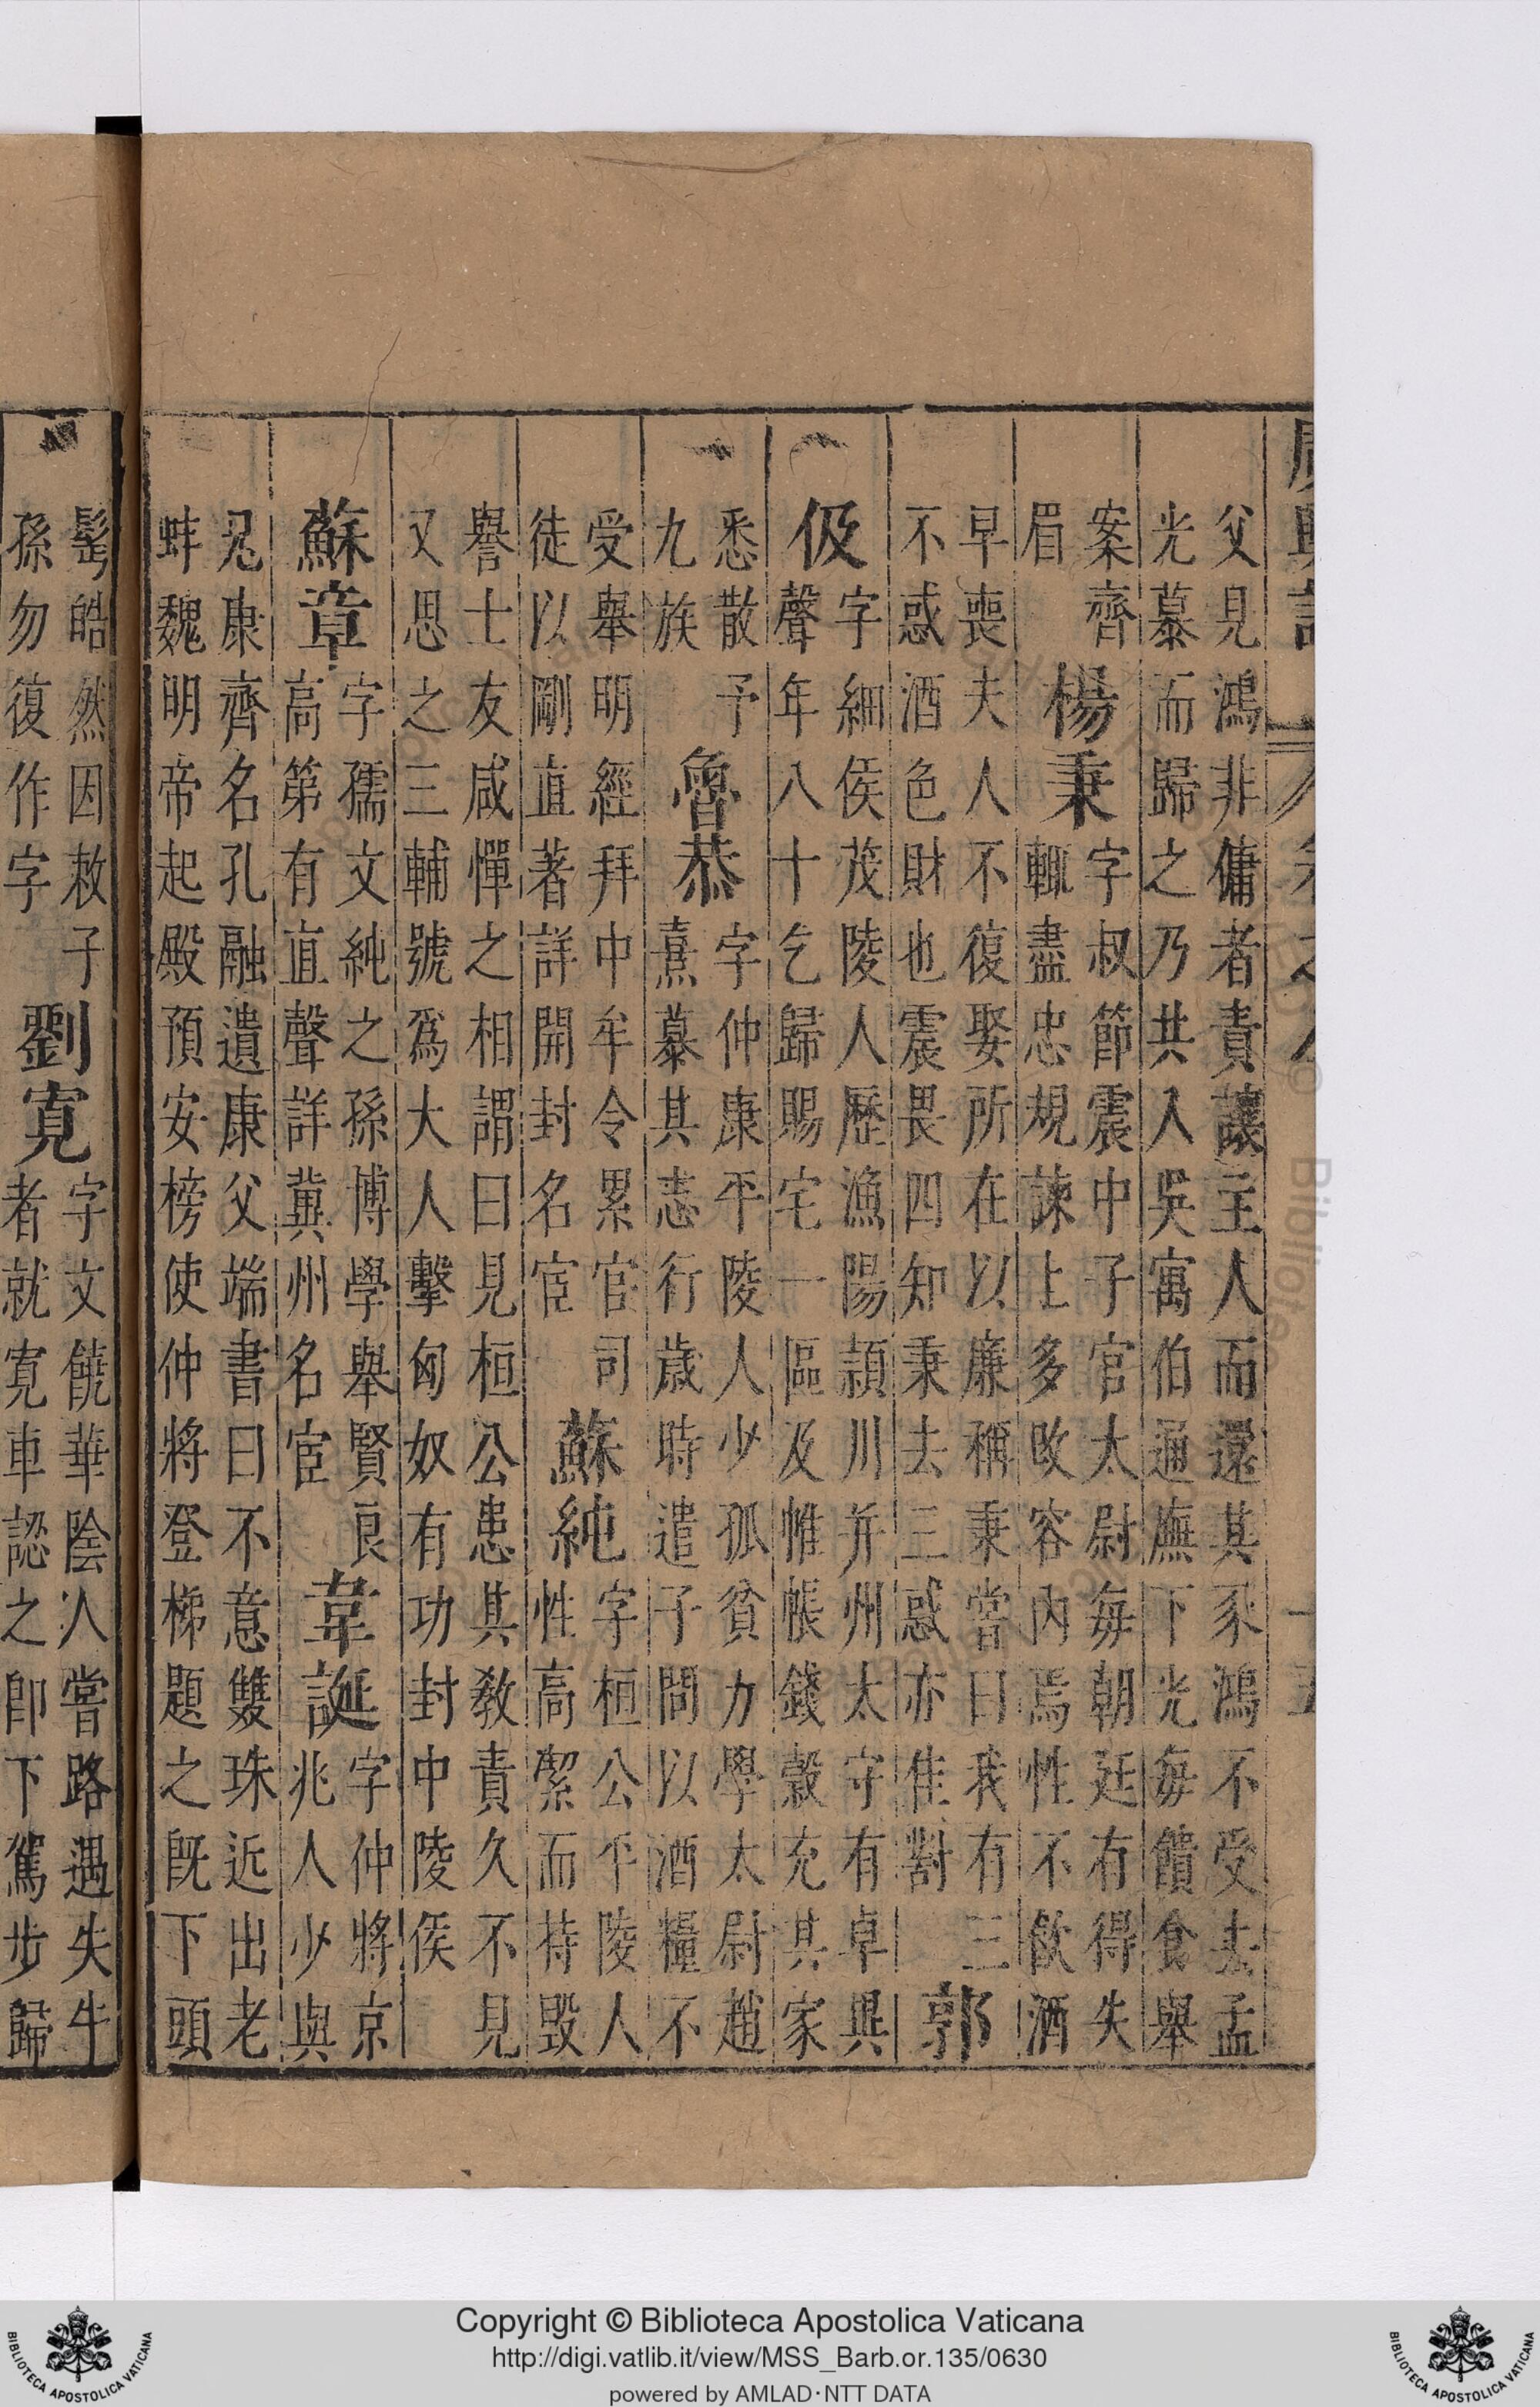 父見鴻非傭者責讓主人而還其豕鴻不受去孟
光慕而歸之乃共入吳寓伯通廡下光每饋食舉
案齊
眉
楊秉
字叔節震中子官太尉每朝廷有得失
輒盡忠規諫上多敗容內焉性不飲酒
早喪夫人不復娶所在以廉稱秉嘗曰我有三
不惑酒色財也震畏四知秉去三惑亦佳對
郭
伋
字細侯茂陵人歷漁陽潁川并州太守有卓異
聲年八十乞歸賜宅一區及帷帳錢穀充其家
悉散予
九族
魯恭
字仲康平陵人少孤貧力學太尉趙
熹慕其志行歲時遣子問以酒糧不
受舉明經拜中牟令累官司
徒以剛直著詳開封名宦
蘇純
字桓公平陵人
性高潔而持毀
譽士友咸憚之相謂曰見桓公患其教責久不見
又思之三輔號為大人擊匈奴有功封中陵侯
蘇章
字孺文純之孫博學舉賢良
高第有直聲詳冀州名宦
韋誕
字仲將京
兆人少與
兄康齊名孔融遺康父端書曰不意雙珠近出老
蚌魏明帝起殿預安榜使仲將登梯題之既下頭
髩皓然因敕子
孫勿復作字
劉寬
字文饒華陰人嘗路遇失牛
者就寬車認之即下駕步歸
Copyright © Biblioteca Apostolica Vaticana
http://digi.vatlib.it/view/MSS_Barb.or.135/0630
powered by AMLAD·NTT DATA
BIBLIOTECA APOSTOLICA VATICANA
BIBLIOTECA APOSTOLICA VATICANA